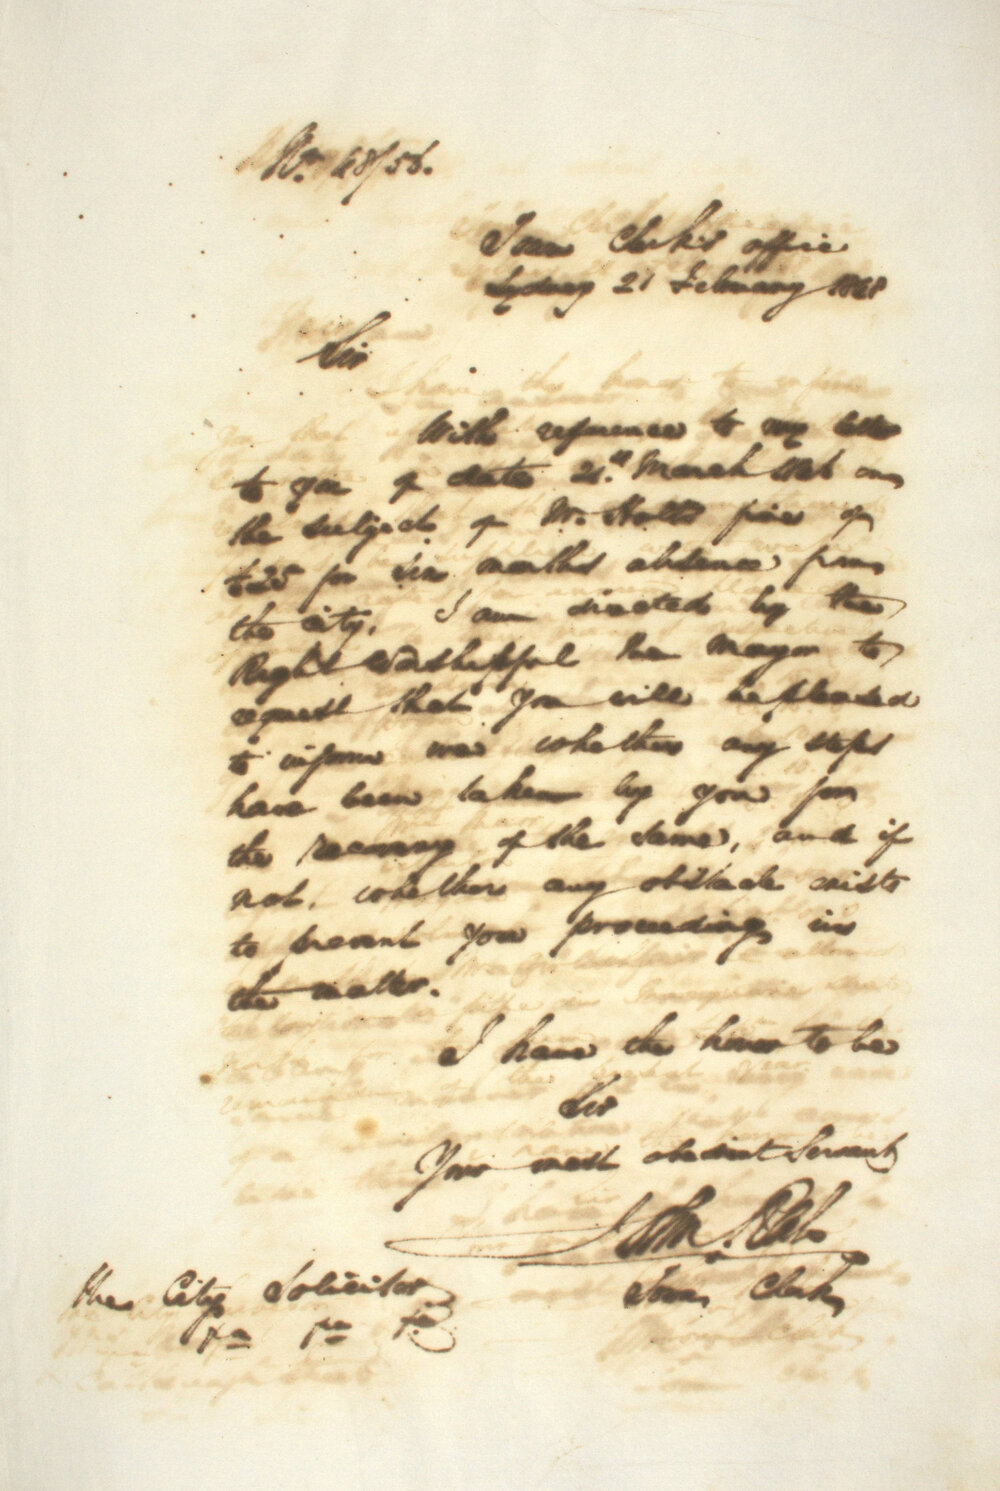 No. 48/56.
Town Clerk's office
Sydney 21 February 1848
Sir
With reference to my letter
to you of date 21st March 1846 on
the subject of Mr. Holt's fine of
£25 for six months absence from
the City, I am directed by the
Right Worshipful the Mayor to
request that you will be pleased
to inform me whether any steps
have been taken by you for
the recovery of the same, and if
not, whether any obstacle exists
to prevent your proceeding in
the matter.
I have the honor to be
Sir
Your most obedient Servant
John
Town Clerk
The City Solicitor